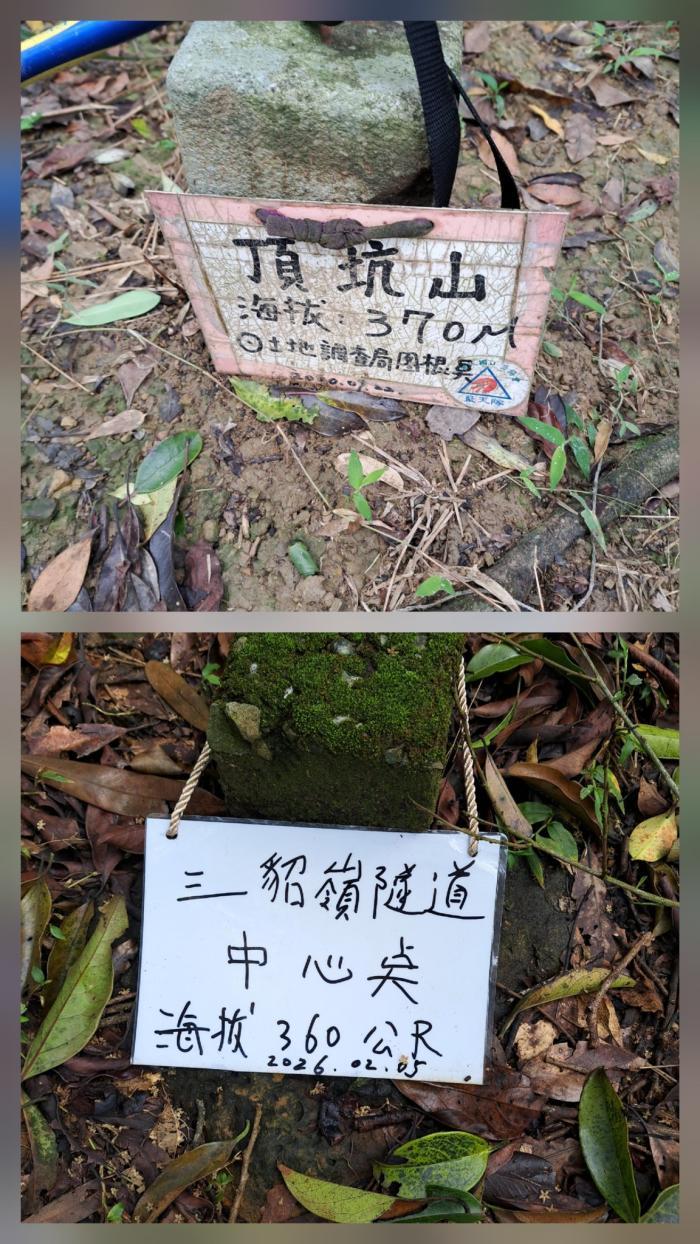 頂坑山
海拔:370M
⊙土地調查局圖根點
藍天隊
三貂嶺隧道
中心点
海拔 360公尺
2026.02.05